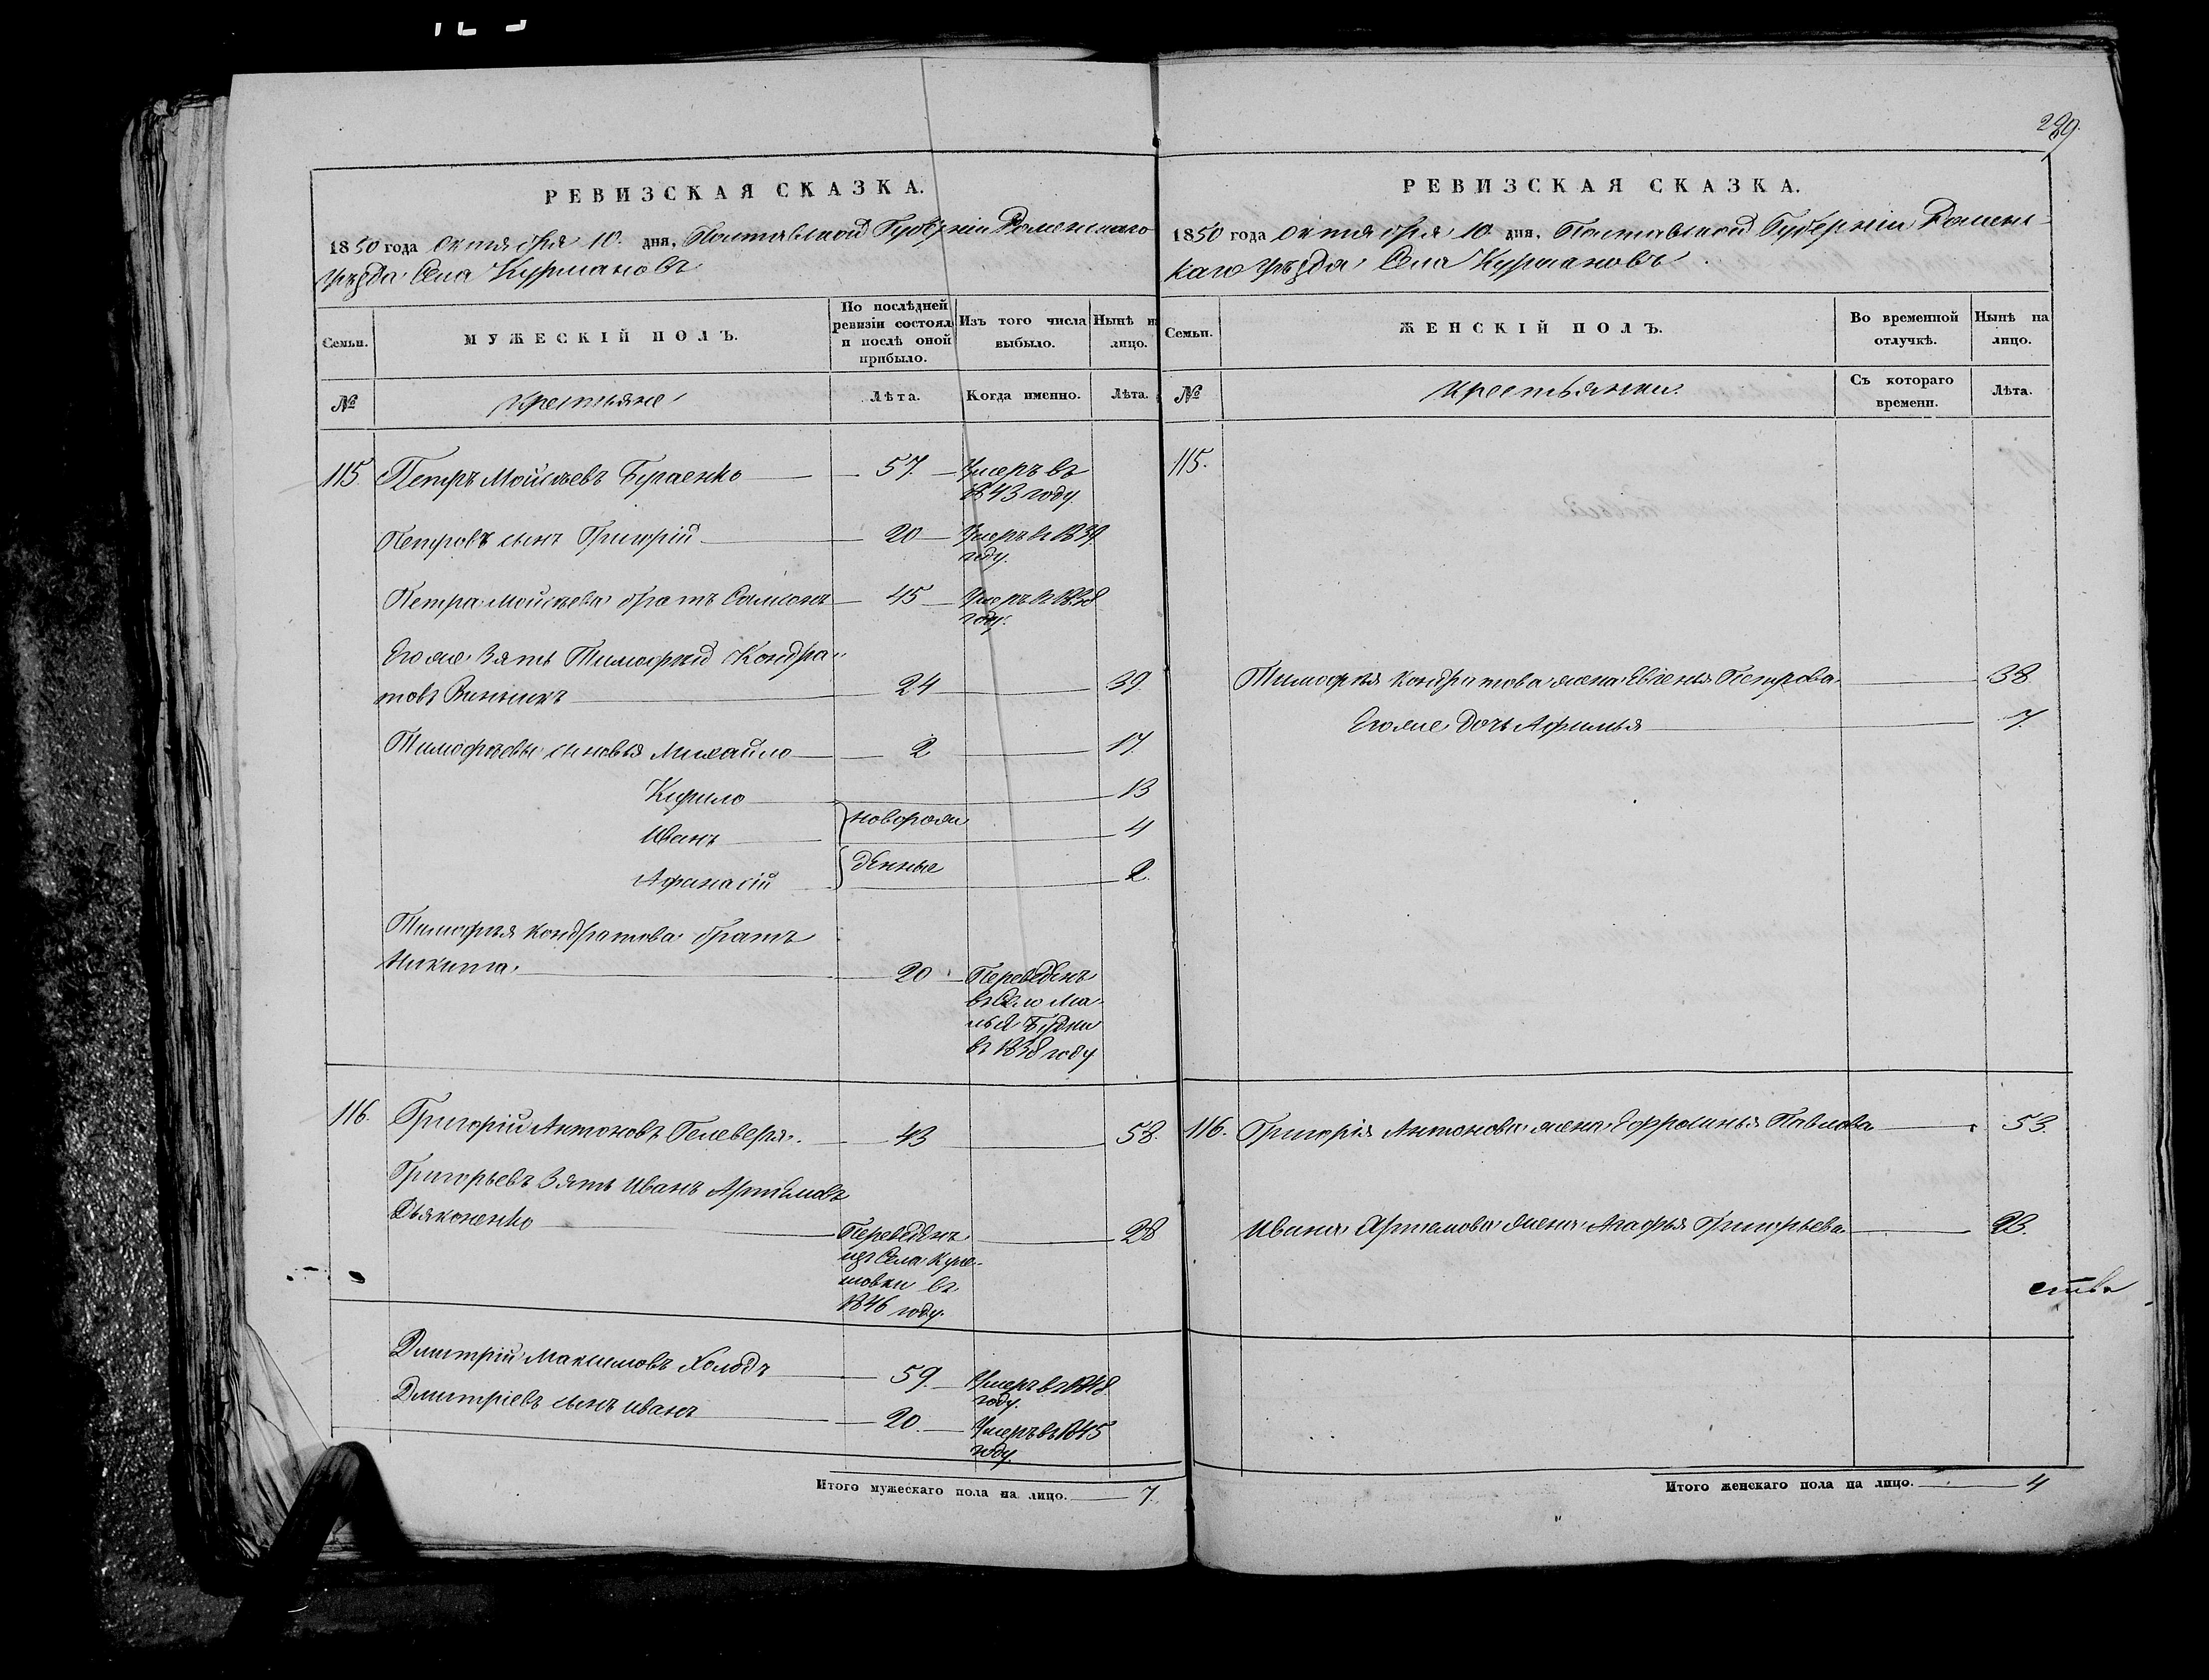 289.
РЕВИЗСКАЯ СКАЗКА.
1850 года октября 10. дня, Полтавской Губерніи Роменскаго
уѣзда Села Курмановъ
Семьи.
МУЖЕСКІЙ ПОЛЪ.
По послѣдней
ревизіи состоял
и послѣ оной
прибыло.
Изъ того числа
выбыло.
Нынѣ н
лицо.
№
Крестьяне
Лѣта.
Когда именно.
Лѣта.
115 Петръ Мойсѣевъ Бураенко 57. Умеръ въ
1843 году.
Петровъ сынъ Григорій 20 Умеръ в 1839
году.
Петра Мойсѣева братъ Самсонъ 45 Умеръ в 1838
году.
Его же Зять Тимофей Кондра-
товъ Винникъ 24 39.
Тимофѣевы сыновья Михайло 2 17.
Кирило 13
Иванъ новорож 4
Афанасій денные 2.
Тимофѣя Кондратова братъ
Никита 20 Переведенъ
въ Село Ма-
лыя Будки
въ 1838 году
116. Григорій Антоновъ Гелеверя. 43 58.
Григорьевъ Зять Иванъ Артемовъ
Дьяконенко Переведенъ 28
изъ Села
въ
1846 году.
Дмитрій Максимовъ Холодъ 59. Умеръ в 1848
году.
Дмитріевъ сынъ Иванъ 20. Умеръ въ 1845
году.
Итого мужескаго пола на лицо. 7.
РЕВИЗСКАЯ СКАЗКА.
1850 года октября 10. дня, Полтавской Губерніи Роменс-
каго уѣзда Села Курмановъ
Семьи.
ЖЕНСКІЙ ПОЛЪ.
Во временной
отлучкѣ.
Нынѣ на
лицо.
№
Крестьянки.
Съ котораго
времени.
Лѣта.
115.
Тимофѣя Кондратова жена Евгенья Петрова 38
Его же Дочь Афимья 7.
116. Григорія Антонова жена Ефросинья Павлова 53.
Ивана Артемова жена Агафья Григорьева 23.
ства
Итого женскаго пола на лицо. 4